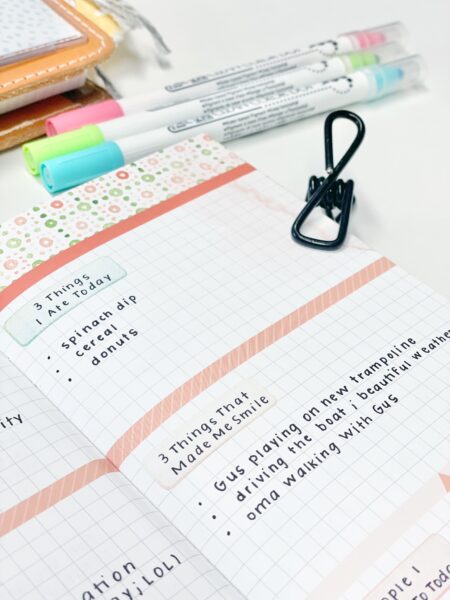 3 Things
I Ate Today
• spinach dip
• cereal
• donuts
3 Things That
Made Me Smile
• Gus playing on new trampoline
• driving the boat i beautiful weather
• oma walking with Gus